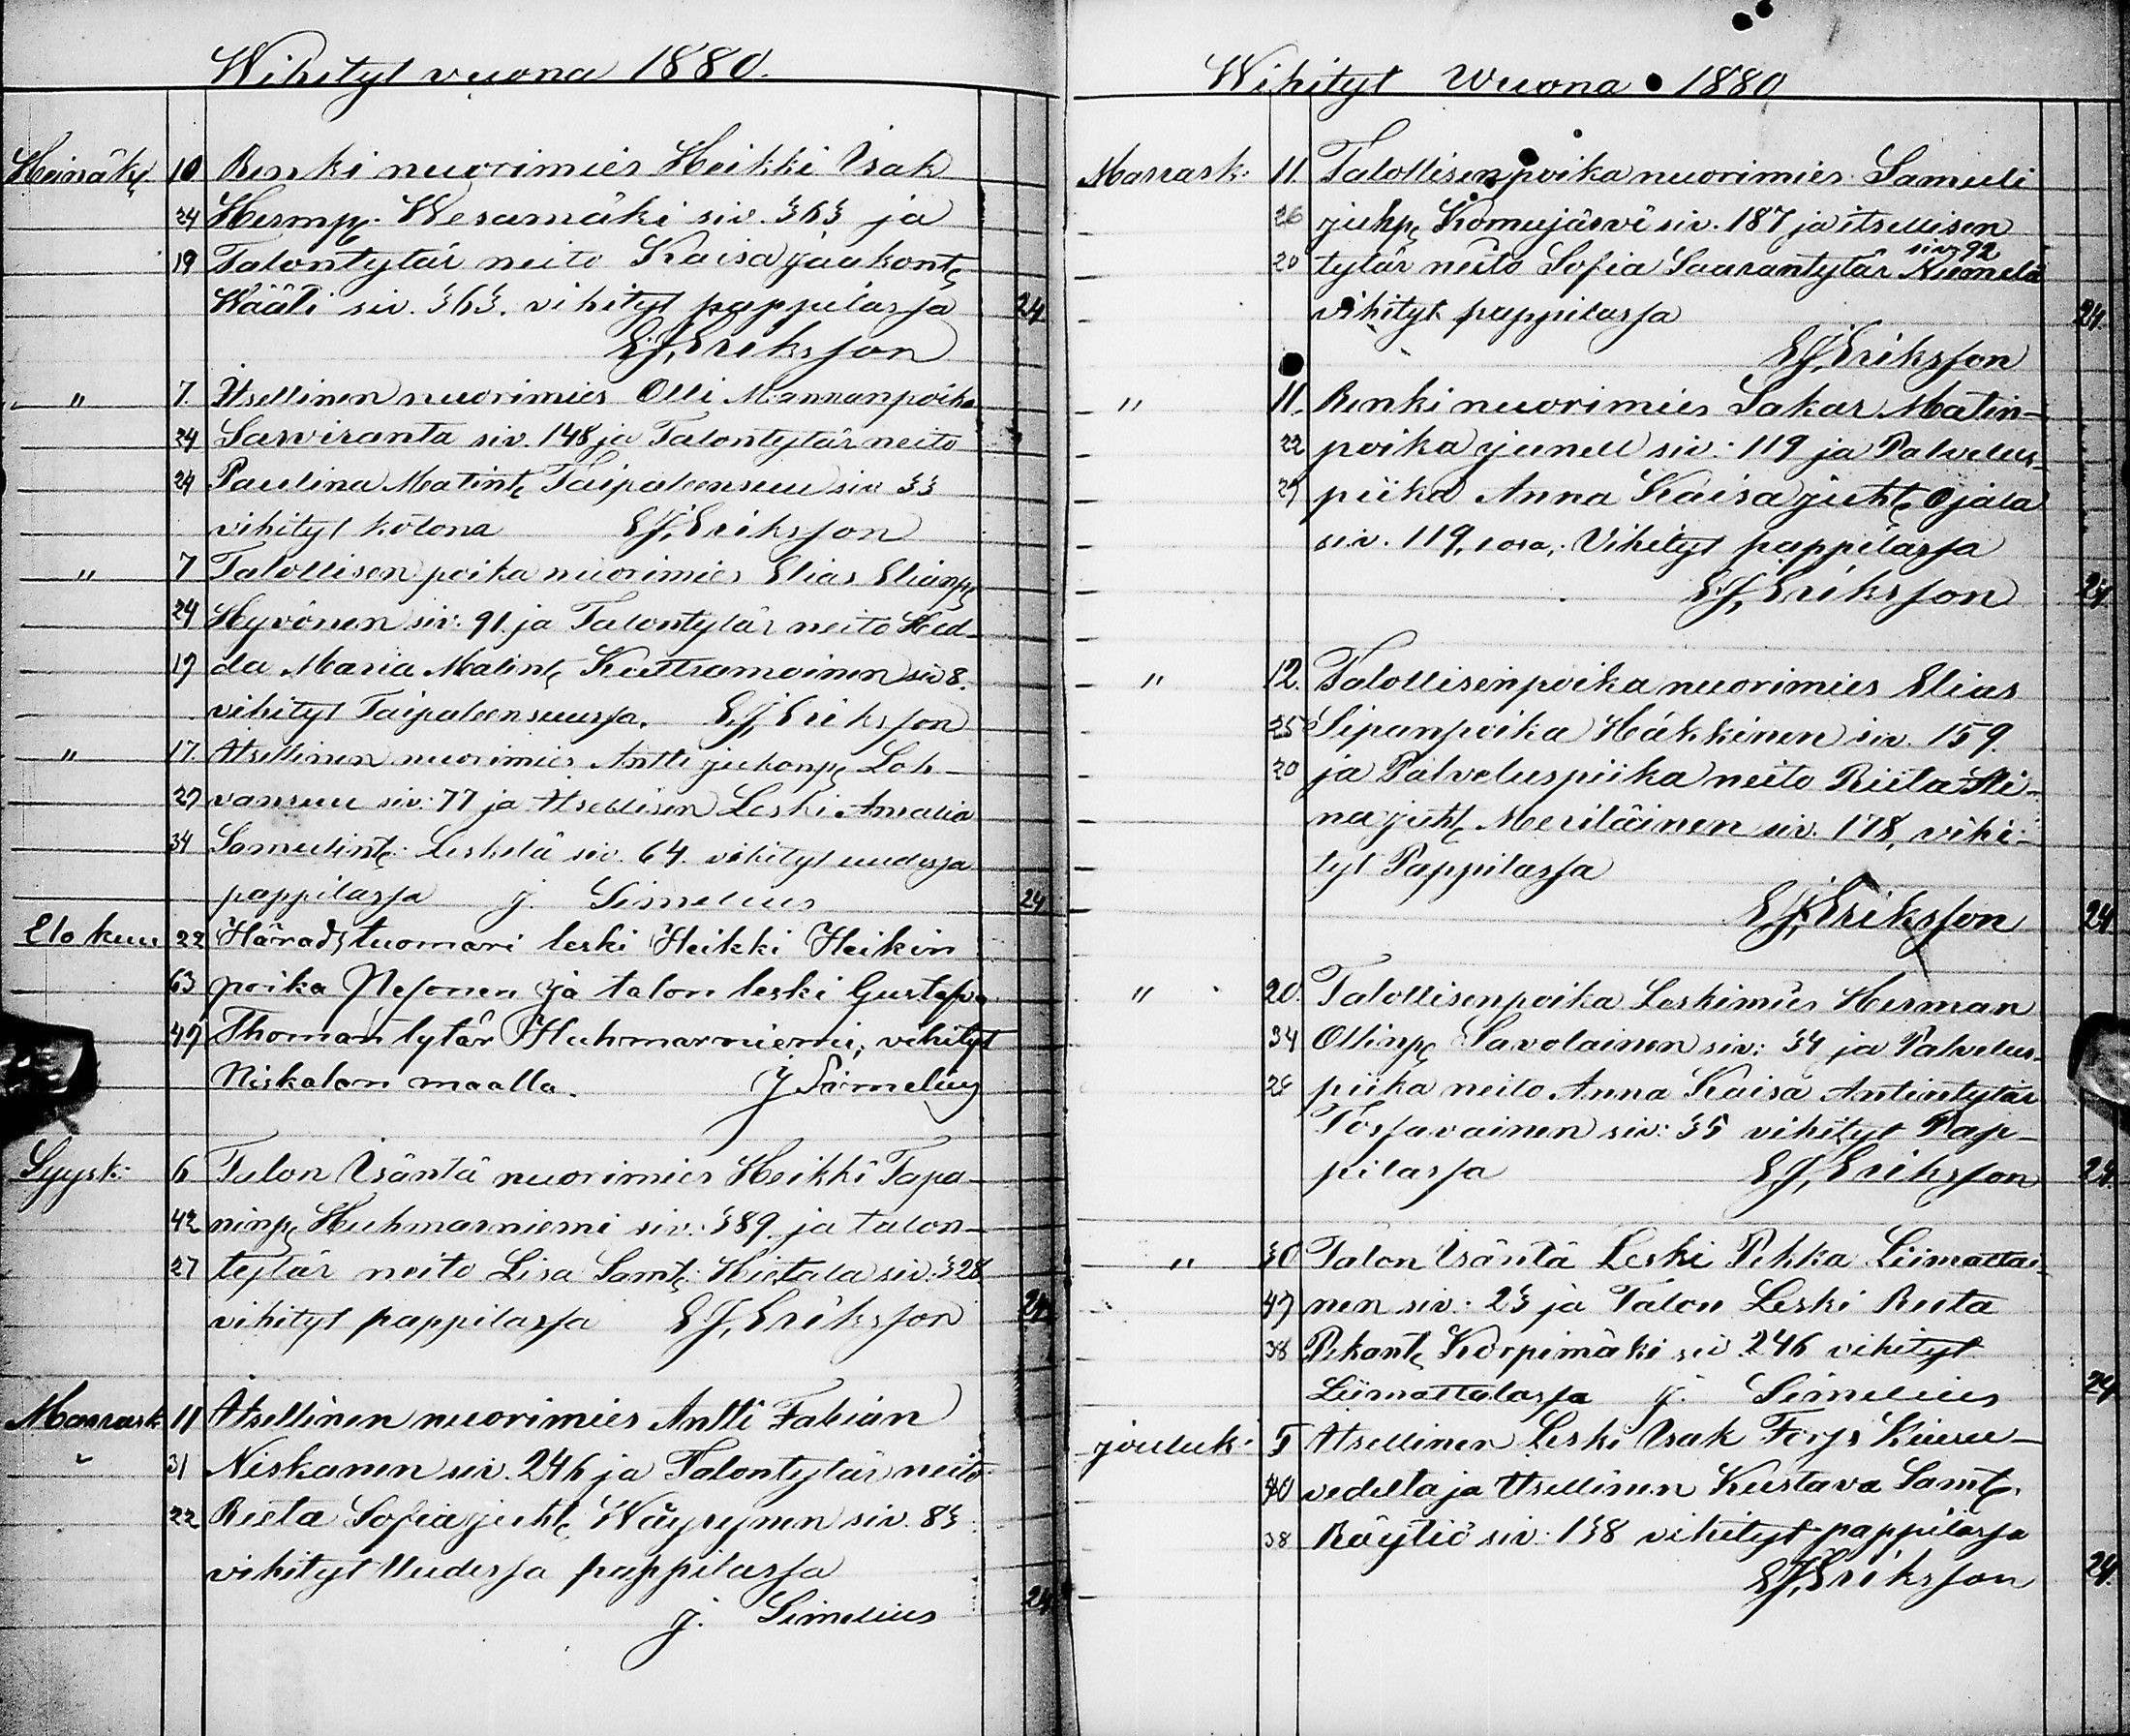 Wihityt vuona 1880.
Heinäk: 10 Renki nuorimies Heikki Isak
24 Hermp: Wesamäki siv. 363 ja
19 Talontytär neito Kaisa Jaakont:
Wääti siv. 363. vihityt pappilassa 24
E.J. Eriksson
" 7. Itsellinen nuorimies Olli Mannanpoika
24 Sarviranta siv. 148 ja Talontytär neito
24 Paulina Matint: Taipaleensuu siv 33
vihityt kotona E.J. Eriksson
" 7 Talollisen poika nuorimies Elias Elianp:
24 Hyvönen siv. 91. ja Talontytär neito Hed-
19 da Maria Matint: Kuttramoinen siv 8.
vihityt Taipaleensuussa. E.J. Eriksson
" 17. Itsellinen nuorimies Antti Juhonp: Loh-
27 vansuu siv: 77 ja Itsellisen Leski Amalia
34 Samulint: Leskelä siv. 64. vihityt uudessa
pappilassa J. Simelius 24
Elo kuu 22 Häradstuomari leski Heikki Heikin
63 poika Nesonen ja talon leski Gustafva
49 Thoman tytär Huhmarniemi, vihityt
Niskalan maalla. J Simelius
Syysk: 6 Talon Isäntä nuorimies Heikki Tapa-
42 ninp: Huhmarniemi siv. 389 ja talon-
27 tytär neito Lisa Samt: Hietala siv. 328
vihityt pappilassa E.J. Eriksson 24
Marrask 11 Itsellinen nuorimies Antti Fabian
" 31 Niskanen siv. 246 ja Talontytär neito
22 Reeta Sofia Juht: Wäyrynen siv. 83
vihityt Uudessa pappilassa
J. Simelius 24
Wihityt Wuona 1880
Marrask: 11. Talollisenpoika nuorimies Samuli
26 Juhp: Komujärvi siv. 187 ja itsellisen
siv. 92
20 tytär neito Sofia Saarantytär Niemelä
vihityt pappilassa 24.
E.J. Eriksson
" 11. Renki nuorimies Sakar Matin-
22 poika Junell siv: 119 ja Palvelus-
27 piika Anna Kaisa Juht: Ojala
siv. 119, 1 osa,. Vihityt pappilassa
E.J. Eriksson 24.
" 12. Talollisenpoika nuorimies Elias
25 Sipanpoika Häkkinen siv. 159.
20 ja Palveluspiika neito Riita Sti-
na Juht: Meriläinen siv. 178, vihi-
tyt Pappilassa
E.J. Eriksson 24.
" 20. Talollisenpoika Leskimies Herman
34 Ollinp: Savolainen siv: 34 ja Palvelus-
26 piika neito Anna Kaisa Antintytär
Tossavainen siv: 35 vihityt Pap-
pilassa E.J. Eriksson 24.
" 30 Talon Isäntä Leski Pekka Liimattai-
47 nen siv.: 23 ja Talon Leski Reeta
38 Pekant: Korpimäki siv. 246 vihityt
Liimattalassa J. Simelius 24
Jouluk: 5 Itsellinen Leski Isak Forss Kiuru-
40 vedelta ja Itsellinen Kustava Samt:
38 Röytiö siv: 138 vihityt pappilassa
E.J. Eriksson 24.